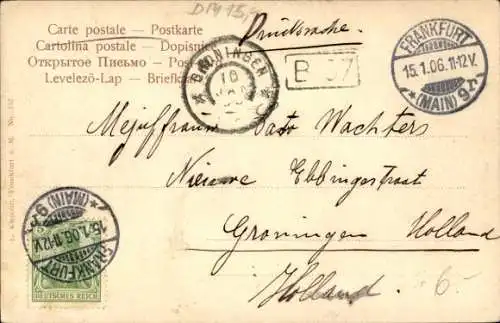 DM 15,-
Carte postale – Postkarte
Cartolina postale – Dopisnice
Открытое Письмо – Post
Levelező-Lap – Briefkaart
Drucksache.
GRONINGEN
16
B 37
FRANKFURT
15.1.06.11-12V.
* (MAIN) 9
Mejuffrouw Wachters
Nieuwe Ebbingestraat
Groningen Holland
Holland
6.-
FRANKFURT
15.1.06.11-12V.
* (MAIN) 9
DEUTSCHES REICH
Frankfurt a. M. No.